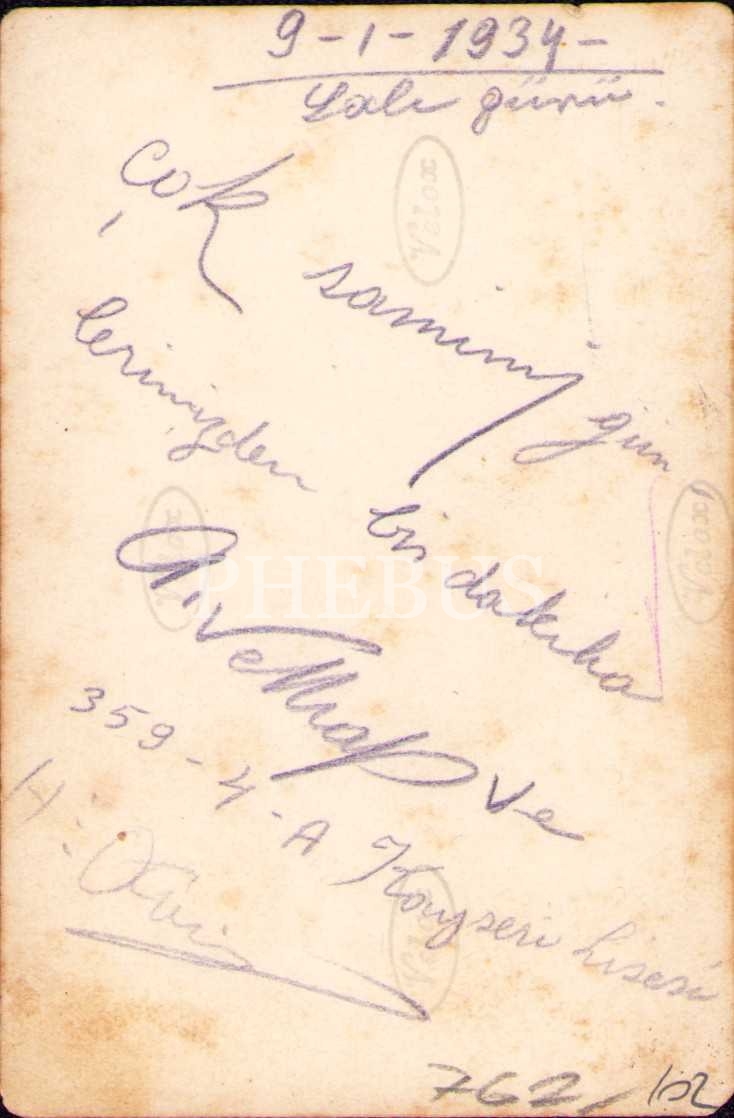 9-1-1934-
Salı günü.
Çok samimi gün
lerimizden bir dakika
A. Vehhap ve
359-4-A Kayseri lisesi
H:
762/102
Velox
Velox
Velox
Velox
PHEBUS